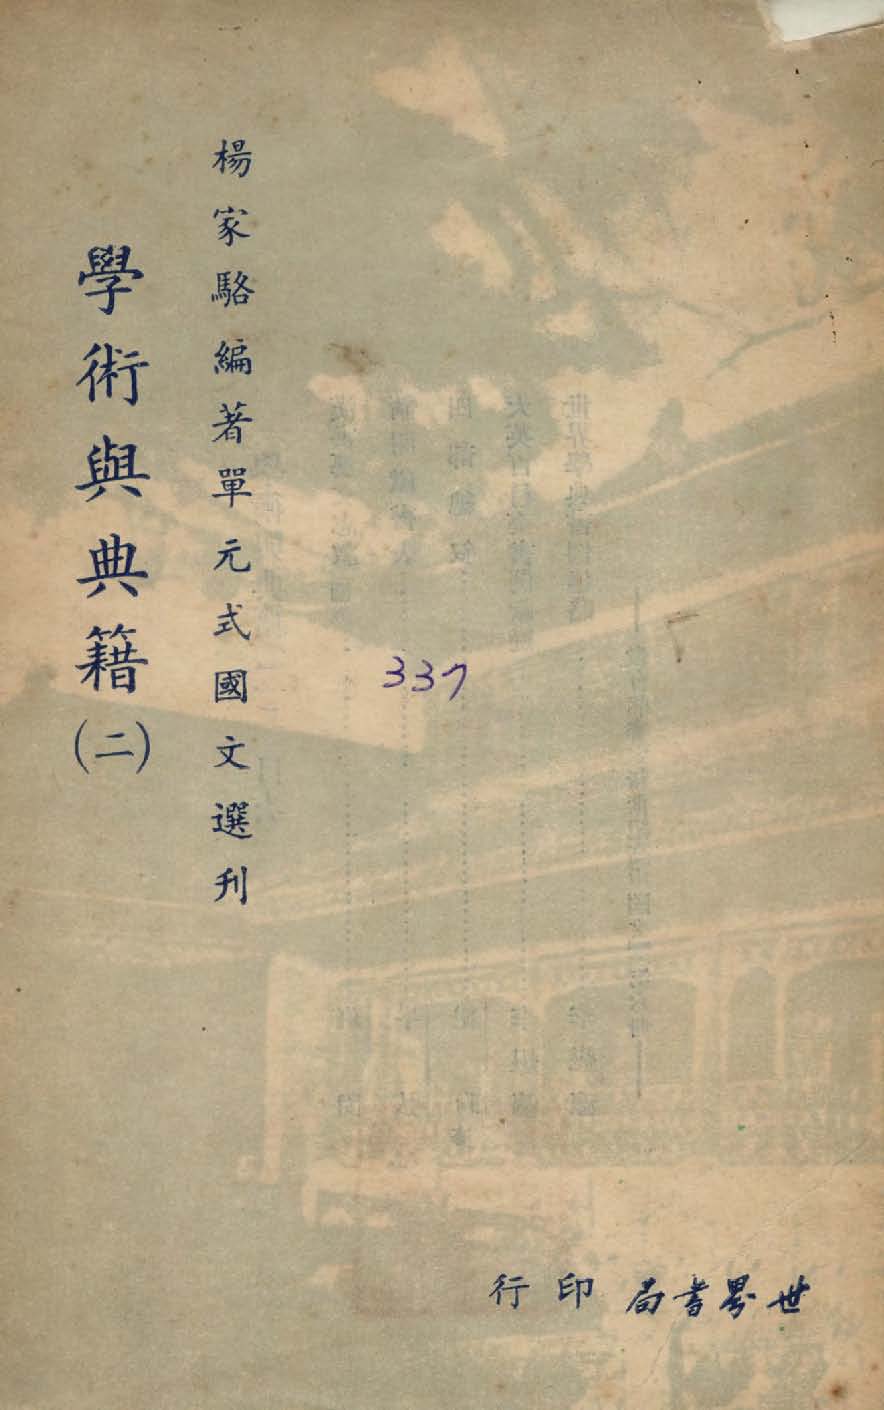 楊家駱編著單元式國文選刊
學術與典籍(二)
337
世界書局印行